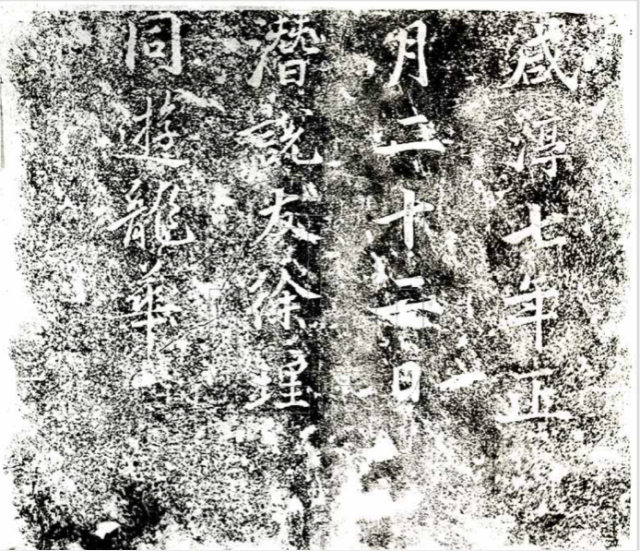 咸淳七年正
月二十二日
潛說友徐理
同遊龍華